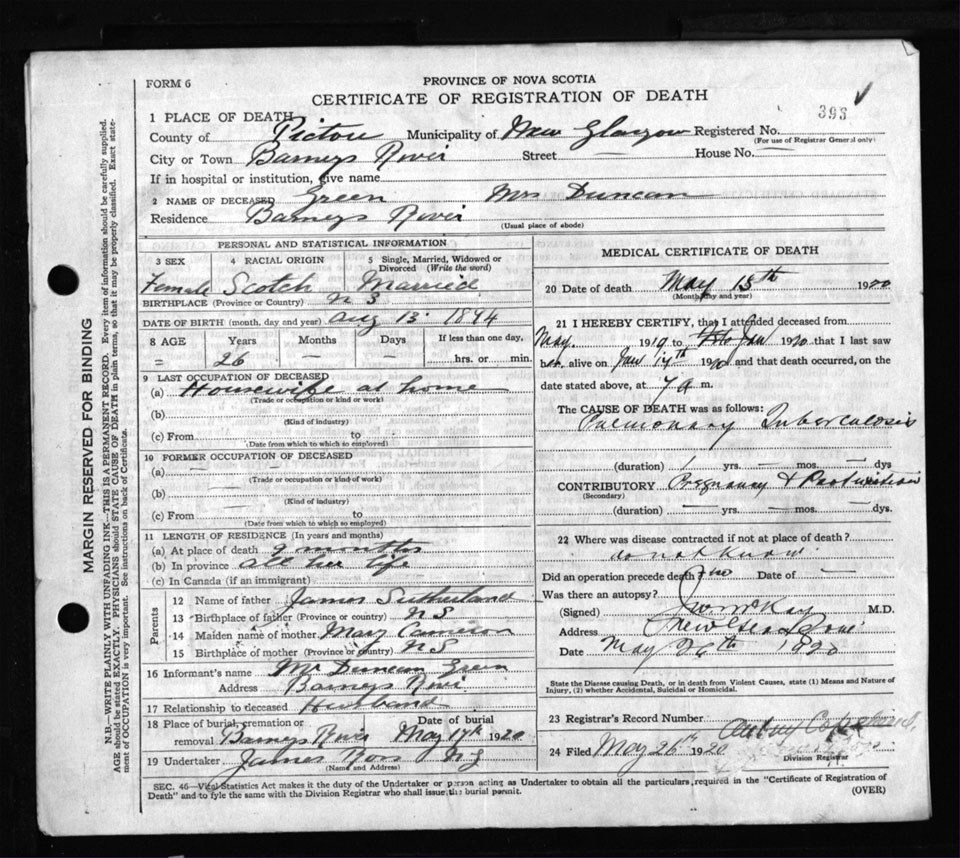 FORM 6
PROVINCE OF NOVA SCOTIA
CERTIFICATE OF REGISTRATION OF DEATH
393
1 PLACE OF DEATH
County of Pictou Municipality of New Glasgow Registered No.
(For use of Registrar General only)
City or Town Barneys River Street — House No. —
If in hospital or institution, give name
2 NAME OF DECEASED Green Mrs Duncan
Residence Barneys River
(Usual place of abode)
PERSONAL AND STATISTICAL INFORMATION
3 SEX 4 RACIAL ORIGIN 5 Single, Married, Widowed or Divorced (Write the word)
Female Scotch Married
BIRTHPLACE (Province or Country) N S
DATE OF BIRTH (month, day and year) Aug 13 1894
8 AGE Years Months Days If less than one day,
= 26 — — ...... hrs. or ...... min.
9 LAST OCCUPATION OF DECEASED
(a) Housewife at home
(Trade or occupation or kind of work)
(b)
(Kind of industry)
(c) From to
(Date from which to which so employed)
10 FORMER OCCUPATION OF DECEASED
(a) — —
(Trade or occupation or kind of work)
(b) —
(Kind of industry)
(c) From to
(Date from which to which so employed)
11 LENGTH OF RESIDENCE (In years and months)
(a) At place of death 9 months
(b) In province all her life
(c) In Canada (if an immigrant)
Parents
12 Name of father James Sutherland
13 Birthplace of father (Province or country) N S
14 Maiden name of mother Mary Cameron
15 Birthplace of mother (Province or country) N S
16 Informant's name Mr Duncan Green
Address Barneys River
17 Relationship to deceased Husband
18 Place of burial, cremation or removal Barneys River Date of burial May 17th 1920
19 Undertaker James Ross N S
(Name and Address)
MEDICAL CERTIFICATE OF DEATH
20 Date of death May 15th 1920
(Month, day and year)
21 I HEREBY CERTIFY, that I attended deceased from
May 1919 to Jan 1920 that I last saw
her alive on Jan 14th 1920 and that death occurred, on the
date stated above, at 7 a m.
The CAUSE OF DEATH was as follows:
Pulmonary Tuberculosis
(duration) 1 yrs. — mos. — dys
CONTRIBUTORY Pregnancy & Parturition
(Secondary)
(duration) — yrs. — mos. — dys.
22 Where was disease contracted if not at place of death?
do not know
Did an operation precede death? no Date of —
Was there an autopsy?
(Signed) McKay M.D.
Address
Date May 26th 1920
State the Disease causing Death, or in death from Violent Causes, state (1) Means and Nature of Injury, (2) whether Accidental, Suicidal or Homicidal.
23 Registrar's Record Number
24 Filed May 26th 1920
Division Registrar
SEC. 46—Vital Statistics Act makes it the duty of the Undertaker or person acting as Undertaker to obtain all the particulars required in the "Certificate of Registration of
Death" and to fyle the same with the Division Registrar who shall issue the burial permit.
(OVER)
MARGIN RESERVED FOR BINDING
N.B.—WRITE PLAINLY WITH UNFADING INK—THIS IS A PERMANENT RECORD. Every item of information should be carefully supplied.
AGE should be stated EXACTLY. PHYSICIANS should STATE CAUSE OF DEATH in plain terms, so that it may be properly classified. Exact statement of OCCUPATION is very important. See instructions on back of Certificate.